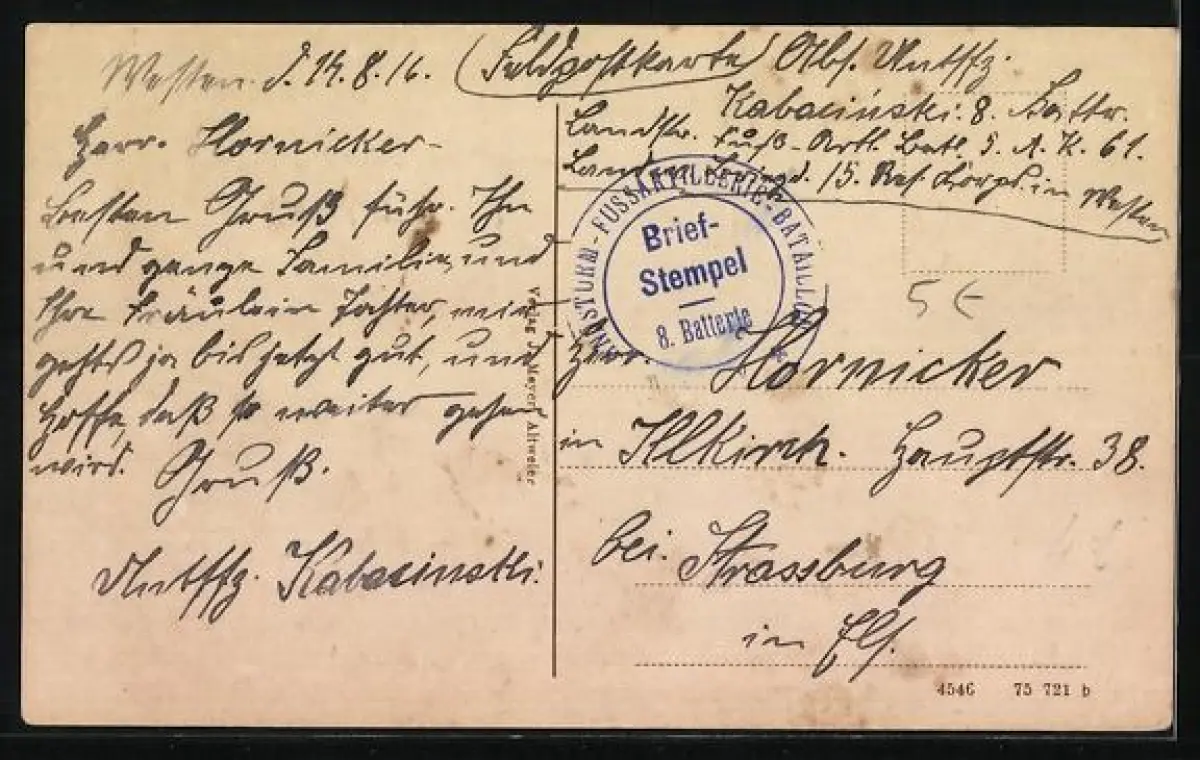 Westen. d. 14.8.16.
Feldpostkarte Abs. Untffz.
Kabaciński. 8. Battr.
Landstr. Fuß-Artl. Batl. 5. A. K. 61.
15. Res. Korps. in Westen
Herr. Hornicker
Besten Gruß
und ganze Familie, und
Ihre Fräulein Tochter, mir
gehts ja bis jetzt gut, und
hoffe, daß so weiter gehen
wird. Gruß.
Untffz. Kabacinski.
LANDSTURM-FUSSARTILLERIE-BATAILLON
Brief-
Stempel
8. Batterie
5 €
Herr. Hornicker
in Illkirch. Hauptstr. 38.
bei. Strassburg
in Els.
Verlag J. Meyer, Altweier
4546 75 721 b